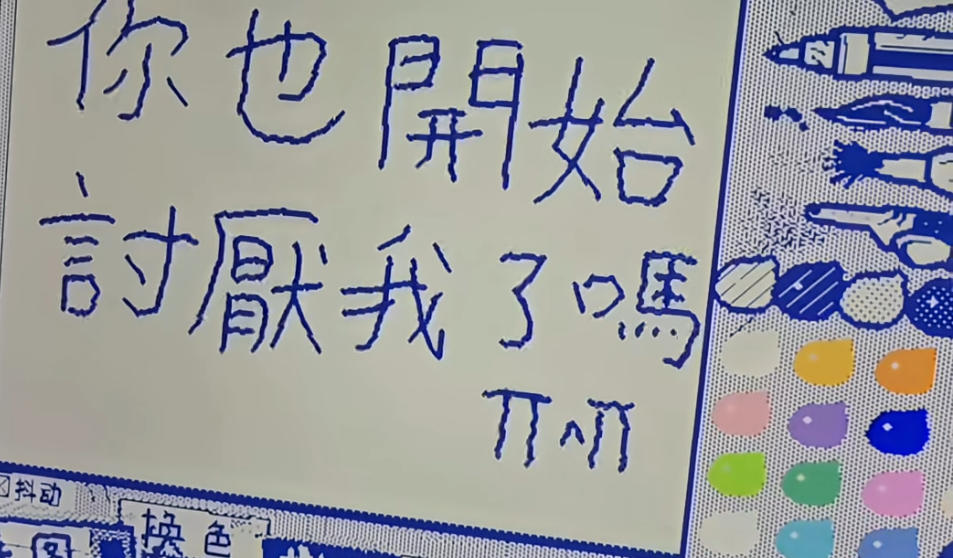 你也開始
討厭我了嗎
ㄇㄇ
抖动
换色